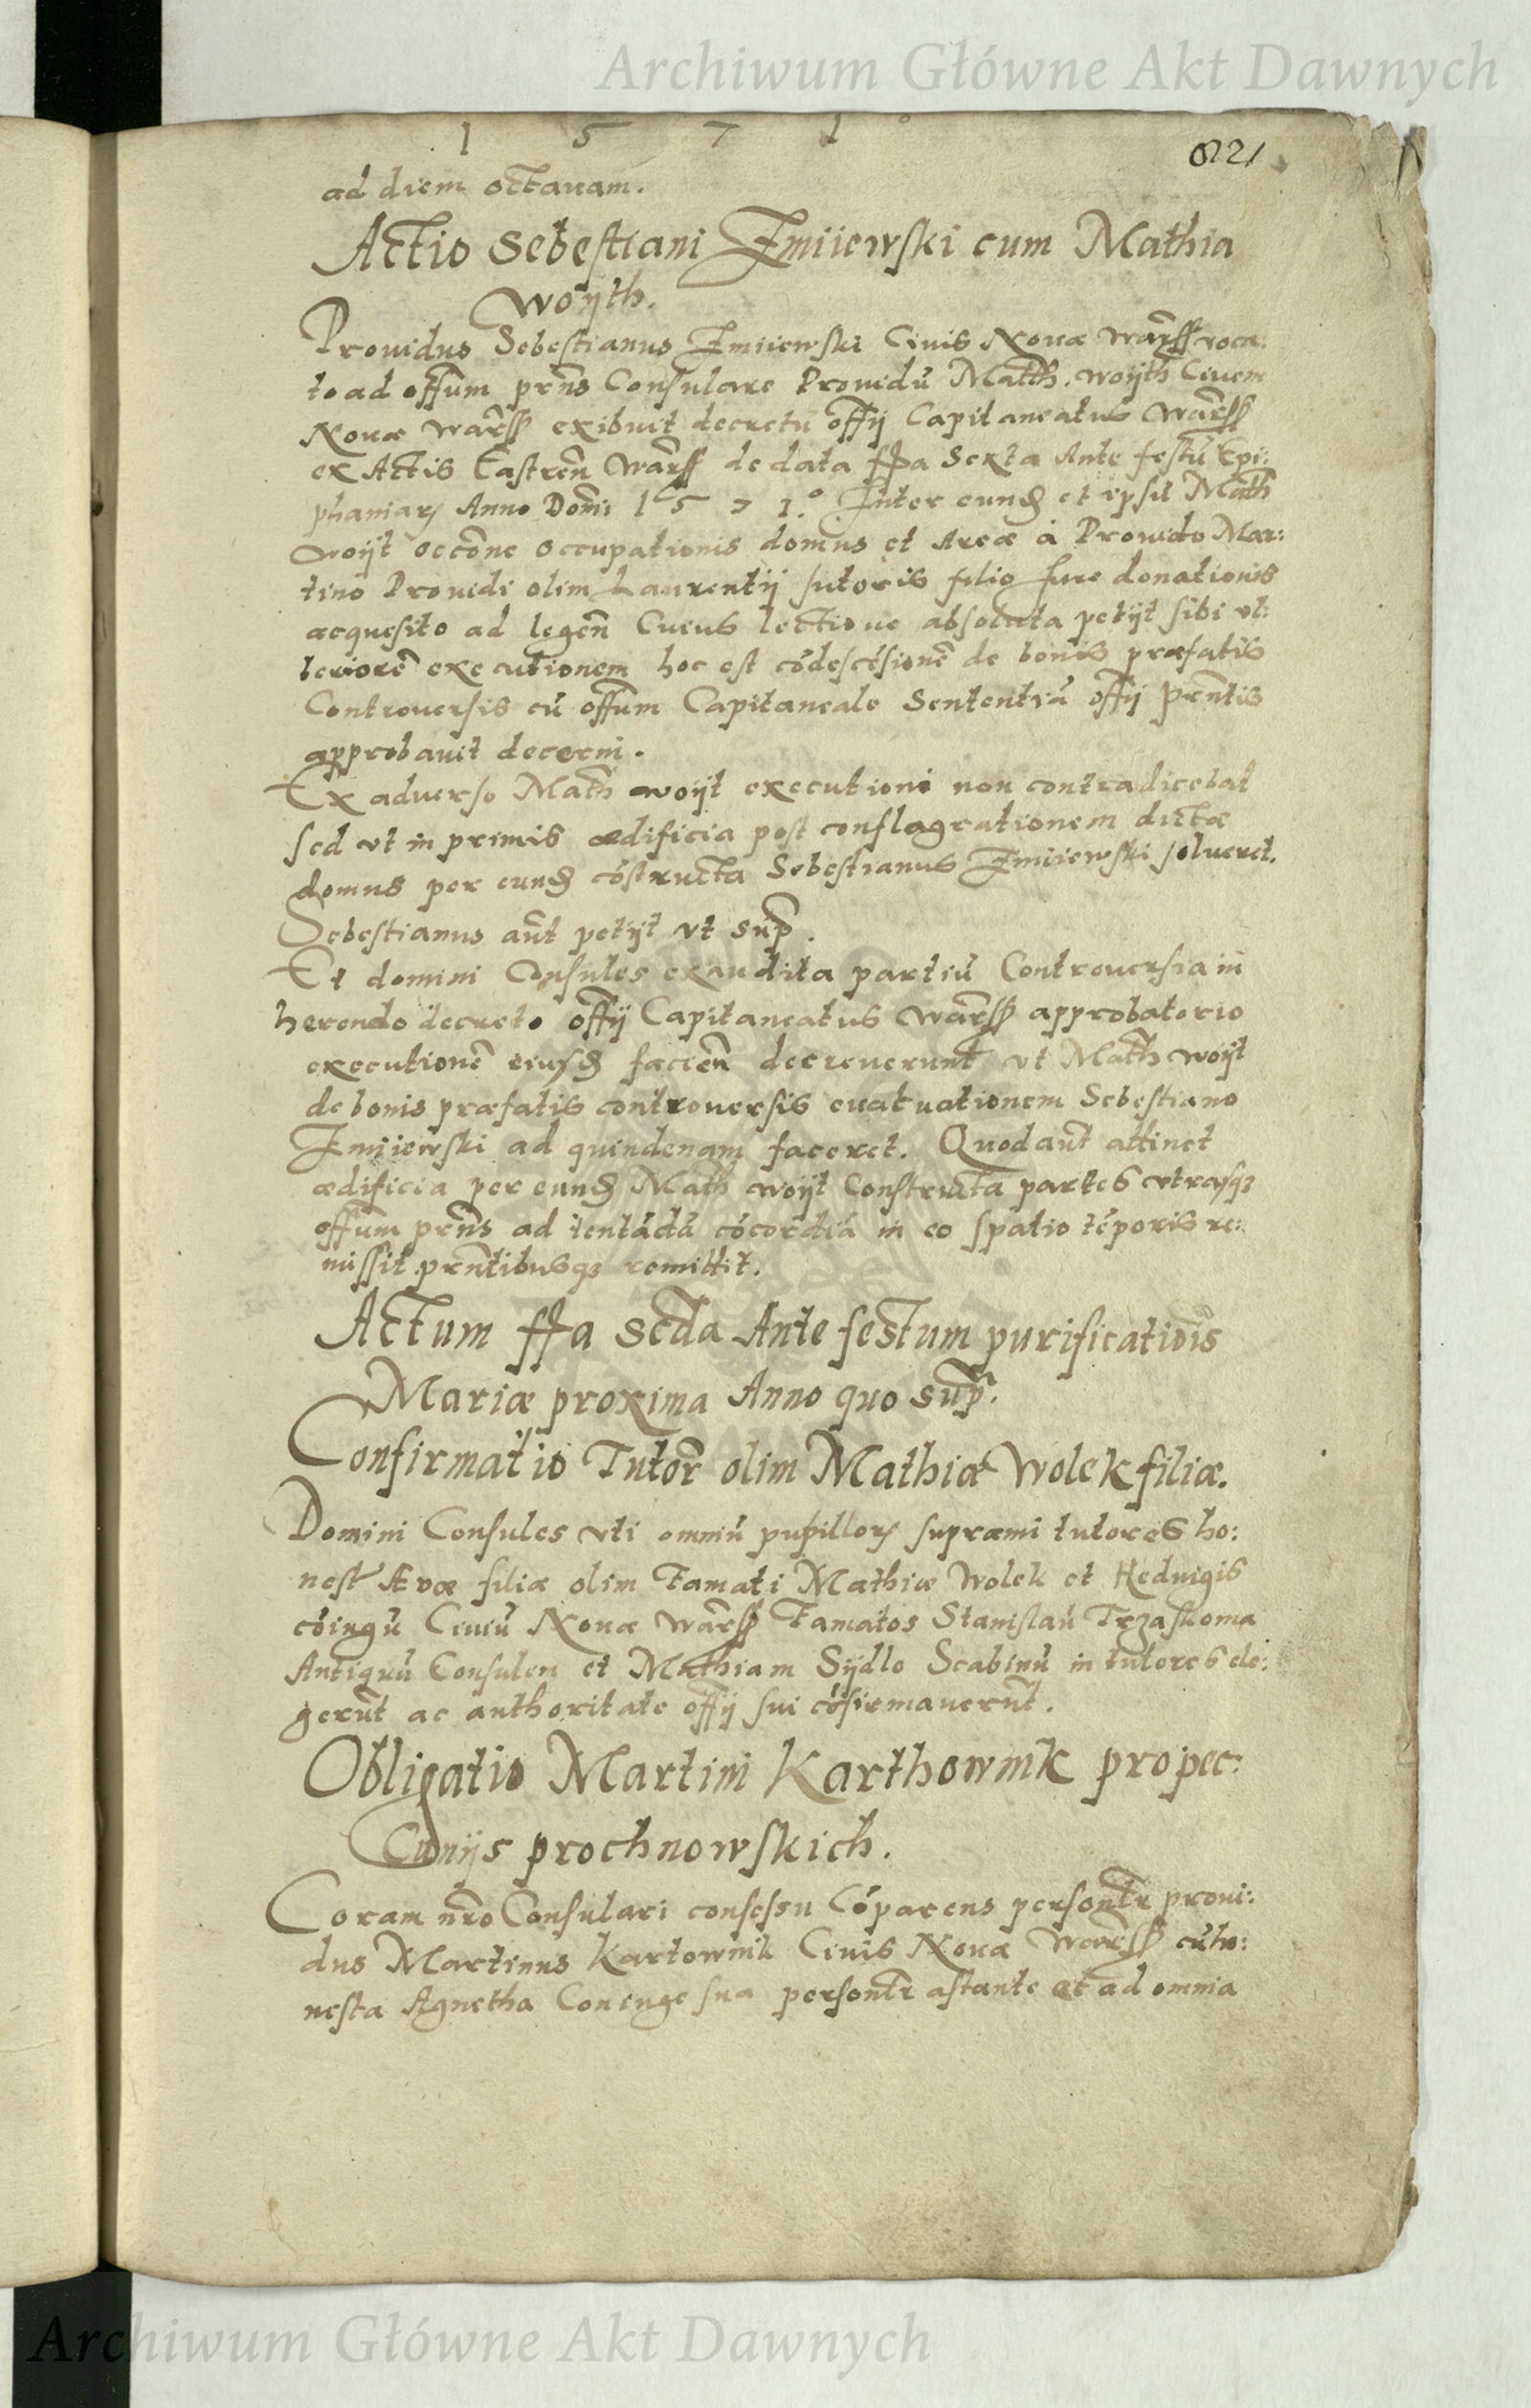 Archiwum Główne Akt Dawnych
1 5 7 1°
821
ad diem octauam.
Actio Sebestiani Zmiiewski cum Mathia
Woyth.
Prouidus Sebestianus Zmiiewski Ciuis Nouæ Warss voca:
to ad offum prns Consulare Prouidū Matth. Woyth Ciuem
Nouæ Warss exibuit decretū offij Capitaneatus Warss
ex Actis Castren Warss de data ffa Sexta Ante festū Epi:
phaniar Anno Domi 1 5 7 1.° Inter eund et ipsū Math
Woyt occone occupationis domus et Areæ à Prouido Mar:
tino Prouidi olim Laurentij sutoris filio Iure donationis
acquesito ad legen Cuius lectione absoluta petijt sibi vl:
teriorē executionem hoc est cōdescēsionē de bonis præfatis
Controuersis cū offum Capitaneale Sententiā offij prntis
approbauit decerni.
Ex aduerso Math woyt executioni non contradicebat
sed vt in primis ædificia post conflagrationem dictæ
domus per eund cōstructa Sebestianus Zmiiewski solueret.
Sebestianus aut petijt vt sup.
Et domini Consules exaudita partiū Controuersia in
herendo decreto offij Capitaneatus Warss approbatorio
executionē eiusd facien decreuerunt vt Math woyt
de bonis præfatis controuersis euatuationem Sebestiano
Zmiiewski ad quindenam faceret. Quod aut attinet
ædificia per eund Math woyt Constructa partes vtrasq3
offum prns ad tentādā cōcordiā in eo spatio tēporis re:
missit prntibusq3 remittit.
Actum ffa scda Ante festum purificatiōis
Mariæ proxima Anno quo sup.
Confirmatio Tutor olim Mathiæ Wolek filiæ.
Domini Consules vti omniū pupillor supræmi tutores ho:
nest Æuæ filiæ olim Famati Mathiæ Wolek et Heduigis
cōiugū Ciuiū Nouæ Warss Famatos Stanislaū Trzaskoma
Antiquū Consulen et Mathiam Sydlo Scabinū in tutores ele:
gerūt ac authoritate offij sui cōfirmauerūt.
Obligatio Martini Karthownik pro pec:
Cunijs prochnowskich.
Coram nro Consulari consessu Cōparens personlr proui:
dus Martinus Kartownik Ciuis Nouæ Warss cū ho:
nesta Agnetha Coniuge sua personlr astante et ad omnia
Archiwum Główne Akt Dawnych